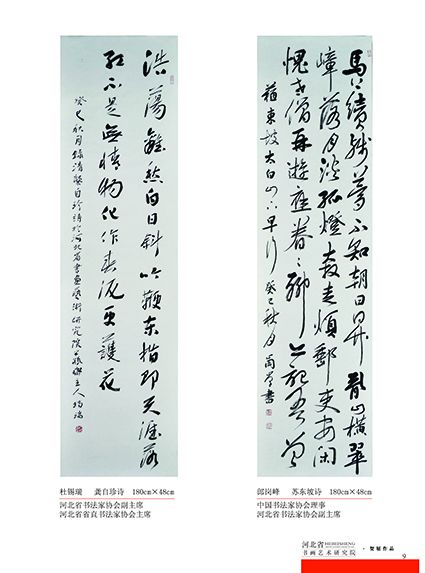 浩蕩離愁白日斜吟鞭東指即天涯落
紅不是無情物化作春泥更護花
癸巳秋月錄清龔自珍詩於河北省書畫藝術研究院 主人錫瑞
馬上續殘夢不知朝日昇亂山橫翠
嶂落月淡孤燈奔走煩郵吏安閑
愧老僧再遊應眷々聊亦記吾曾
蘇東坡太白山下早行 癸巳秋月 書
杜锡瑞 龚自珍诗 180cm×48cm
河北省书法家协会副主席
河北省省直书法家协会主席
郎岗峰 苏东坡诗 180cm×48cm
中国书法家协会理事
河北省书法家协会副主席
河北省HEBEISHENG
书画艺术研究院
·贺展作品
9